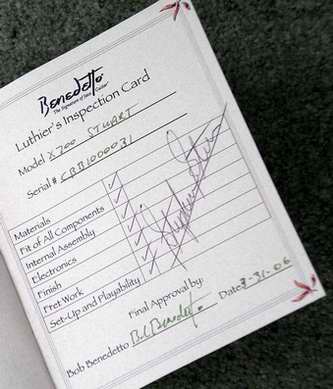 Benedetto
The Signature of Jazz Guitar
Luthier's Inspection Card
Model X700 STUART
Serial # CBB1000031
Materials ✓
Fit of All Components ✓
Internal Assembly ✓
Electronics ✓
Finish ✓
Fret Work ✓
Set-Up and Playability ✓
Final Approval by:
Bob Benedetto Date: